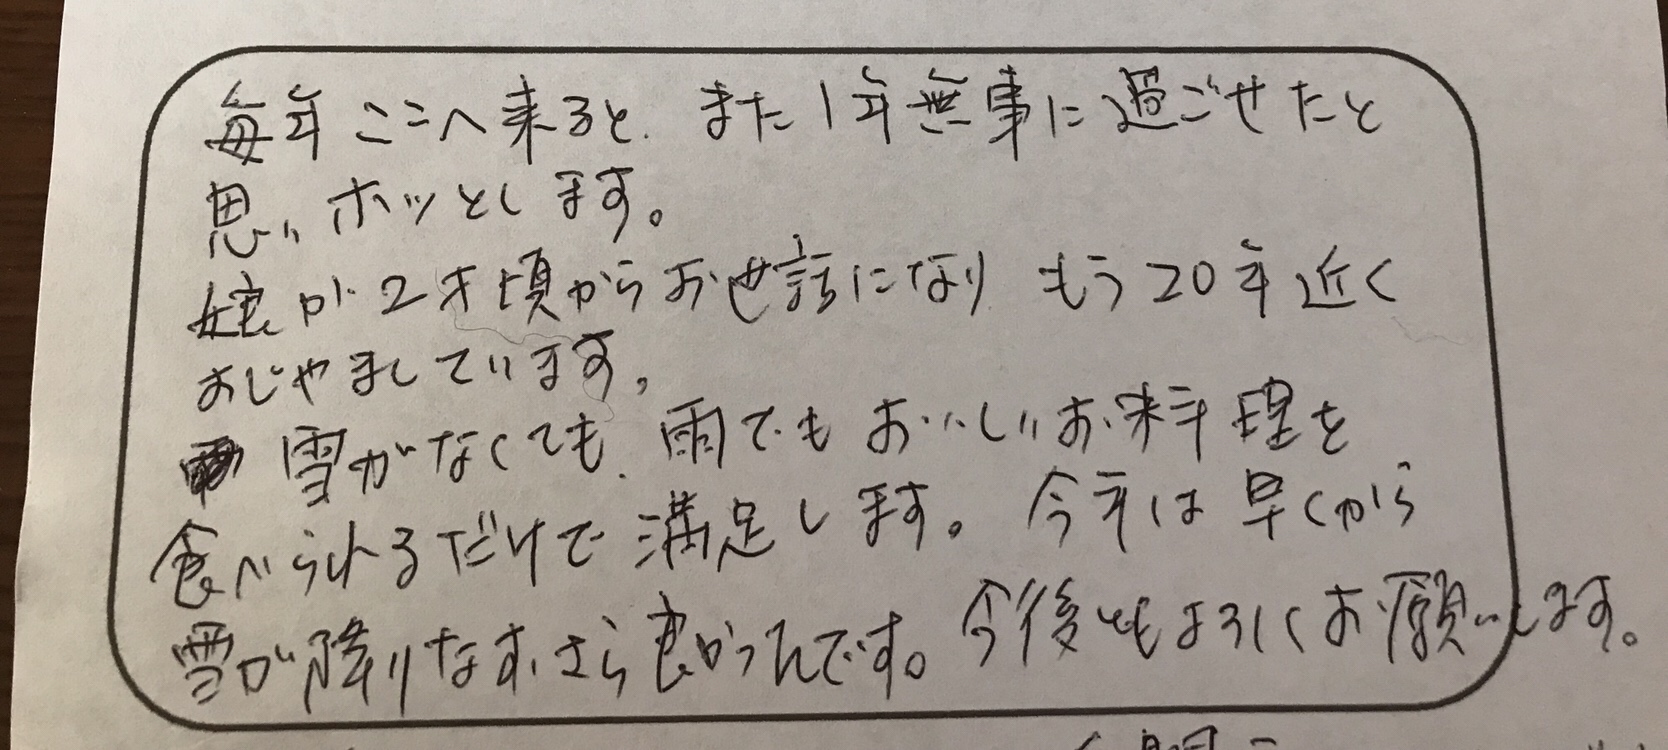 毎年ここへ来ると、また1年無事に過ごせたと
思い、ホッとします。
娘が2才頃からお世話になり もう20年近く
おじゃましています。
雪がなくても、雨でもおいしいお料理を
食べられるだけで満足します。今年は早くから
雪が降りなおさら良かったです。今後ともよろしくお願いします。